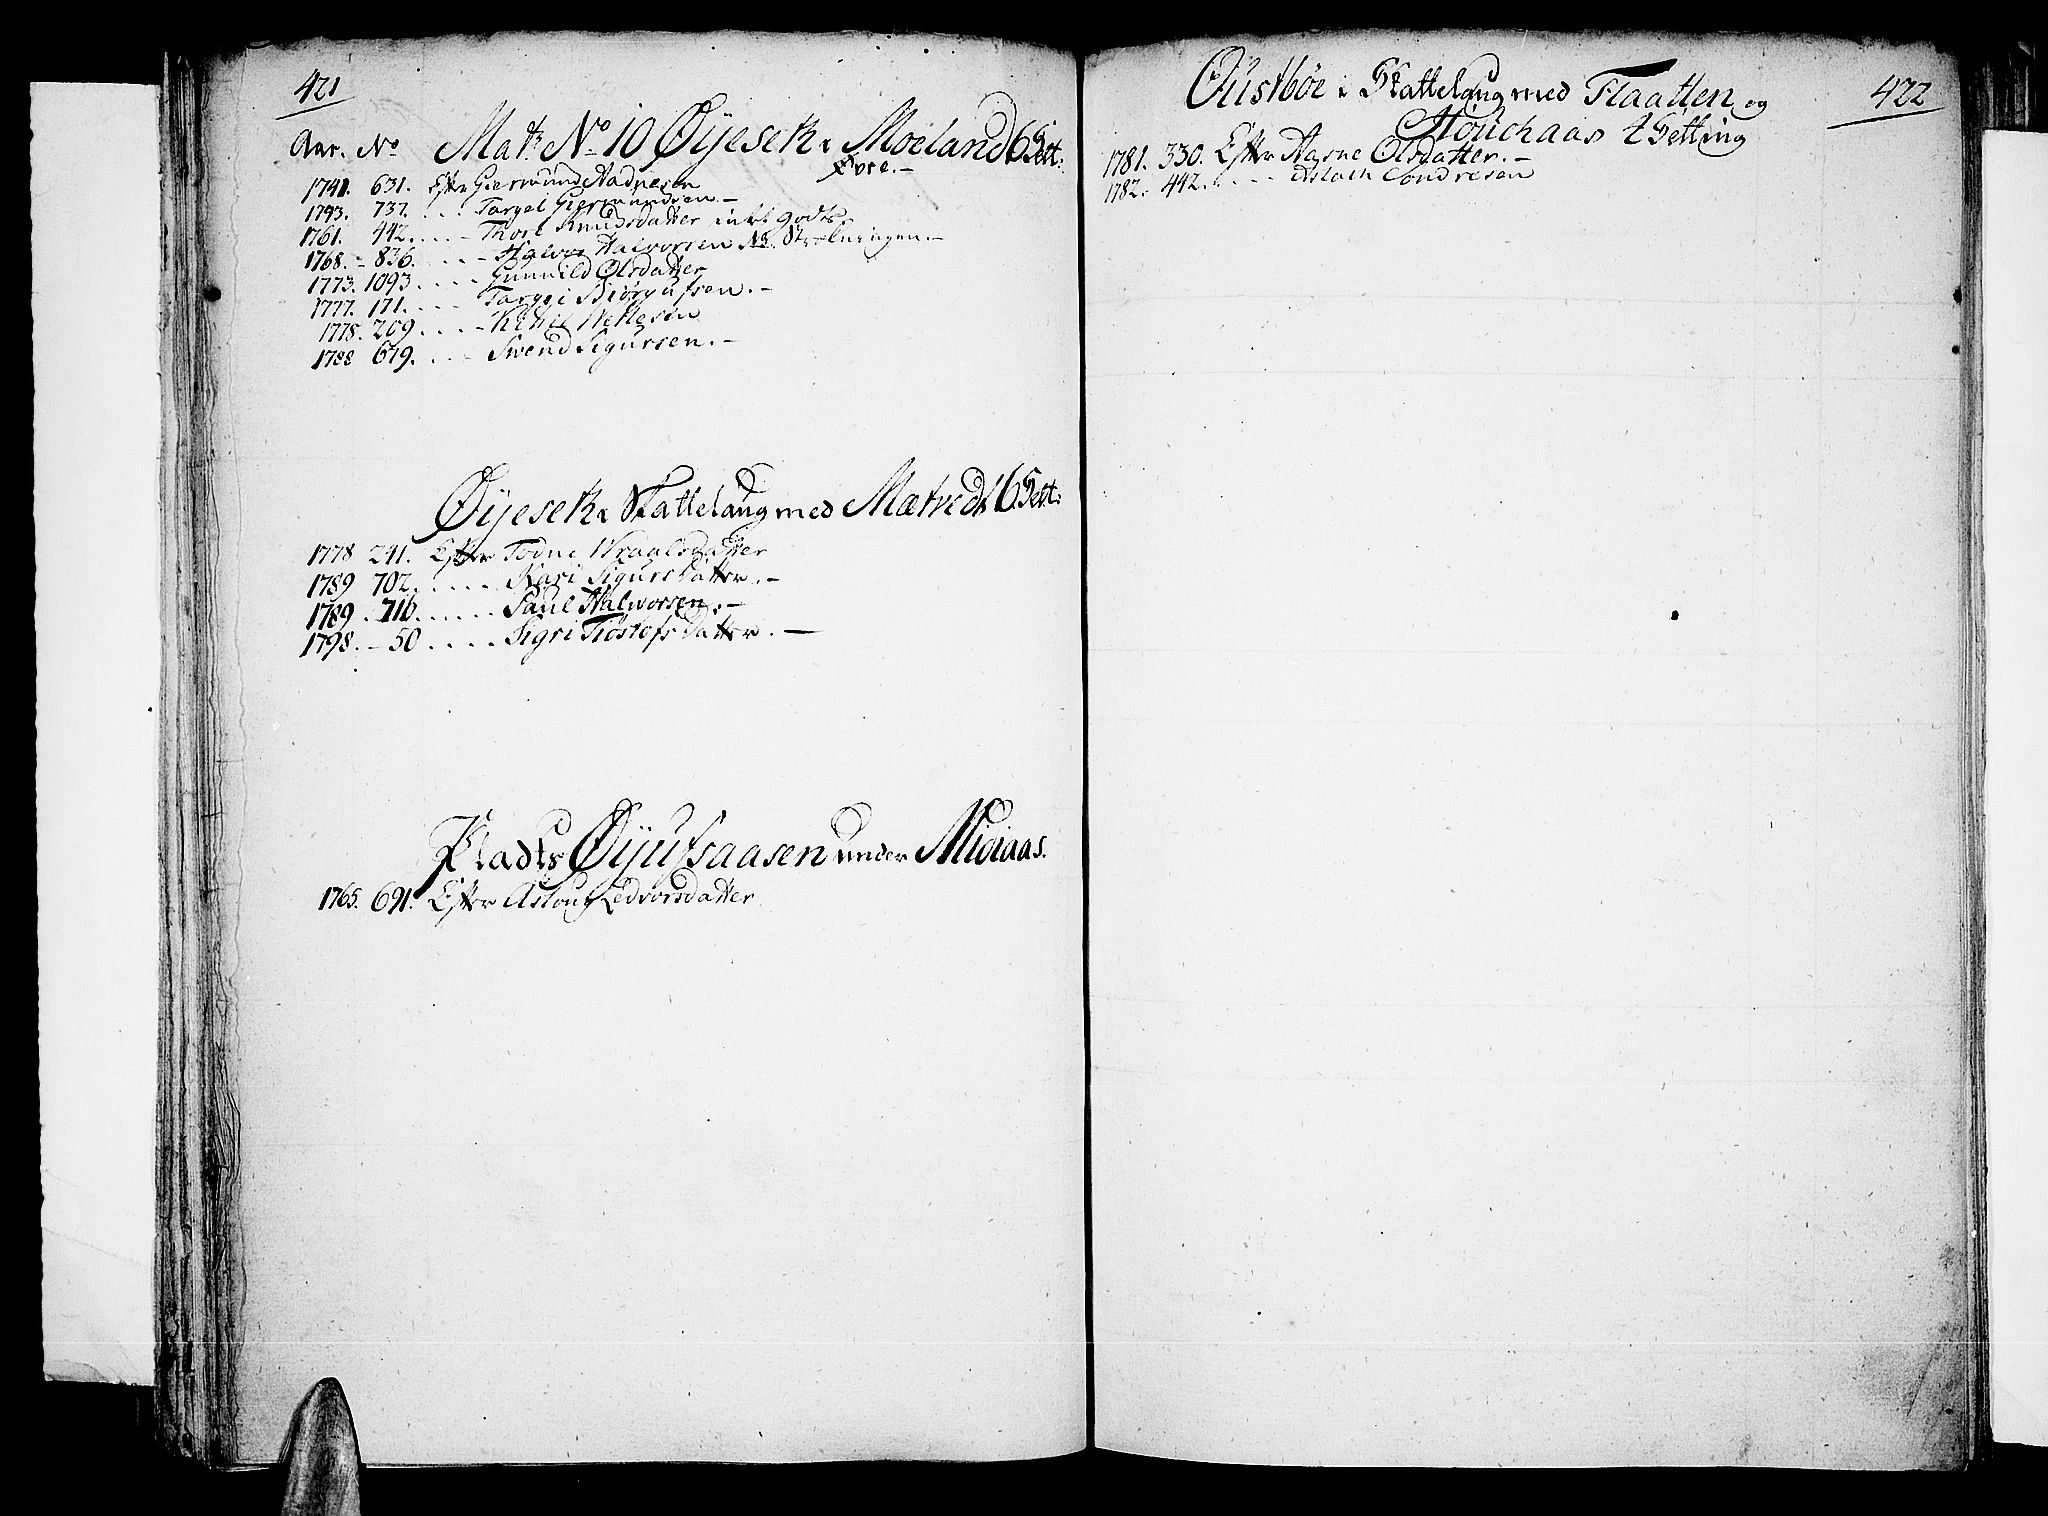 421
Aar. No Matr: No 10 Øijesek i Moeland 6 Sett:
Øvre.-
1741. 631. Efter Giermund Aadnesen
1743. 737. . . : Targel Giermundsen.-
1761. 442. . . . . - Thore Knudsdatter intet gods
1768. - 836. . . . . - Halvor Halvorsen No. Strækningen.-
1773. 1093. . . . . Gunnild Olsdatter
1777. 171. . . . - Targei Biørgufsen.-
1778. 209. . . . - Kitil Wetlesen
1788 679. . . . Svend Sigursen.-
Øijesek i Skattelaug med Mætvedt 6 Sett:
1778 241. Efter Todne Wraalsdatter
1789 702. . . . . . Kari Sigursdatter.-
1789. 716. . . . . . Paul Halvorsen.-
1798. - 50. . . . . Sigri Tiøstofsdatter.-
Plads Øijufsaasen under Midiaas.
1765. 691. Efter Asloug Ledvorsdatter
422
Øüstbøe i Skattelaug med Flaatten og
Houchaas 4 Setting
1781. 330. Efter Aasne Olsdatter.-
1782. 442. . . . . Aslach Tondresen